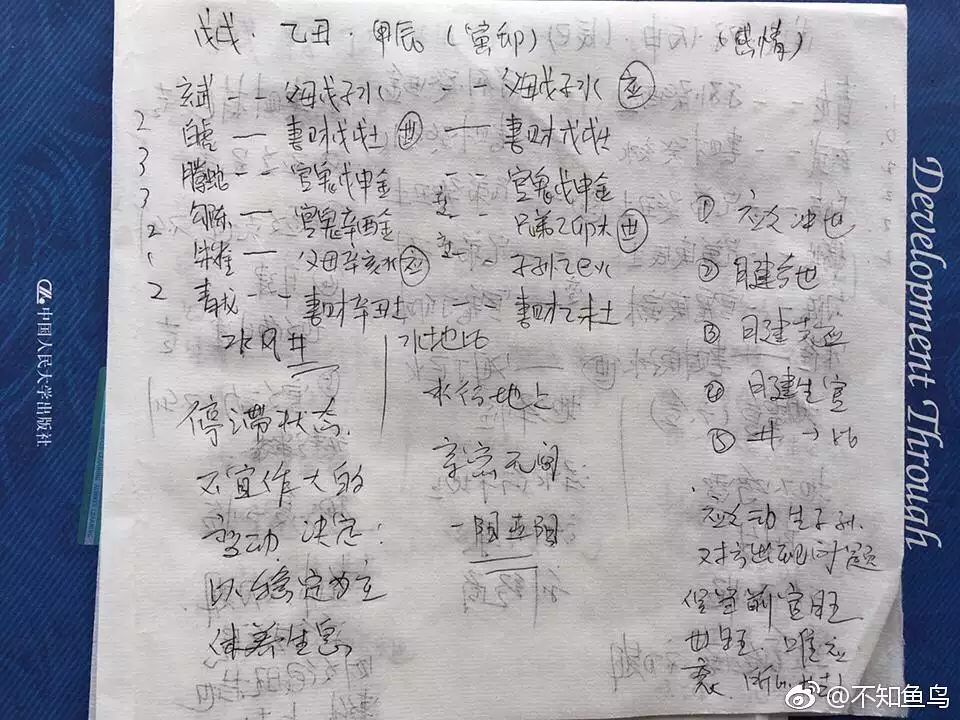 戊戌·乙丑·甲辰(寅卯) (感情)
玄武 -- 父母戊子水 -- 父母戊子水 应
2 白虎 — 妻财戊戌土 世 — 妻财戊戌土
3 腾蛇 -- 官鬼戊申金 -- 官鬼戊申金
3 勾陈 — 官鬼辛酉金 -- 兄弟乙卯木 世
2 朱雀 — 父母辛亥水 应 -- 子孙乙巳火
1
2 青龙 -- 妻财辛丑土 — 妻财乙未土
水风井
停滞状态
不宜作大的
变动 决定:
以稳定为主
休养生息
水地比
水行地上
亲密无间
一阳五阴
① 应爻冲世
② 日建合世
③ 日建克应
④ 日建生官
⑤ 井→比
应爻动生子孙
对方出现问题
官旺
世旺 唯应
衰
Development Through
中国人民大学出版社
@不知鱼鸟